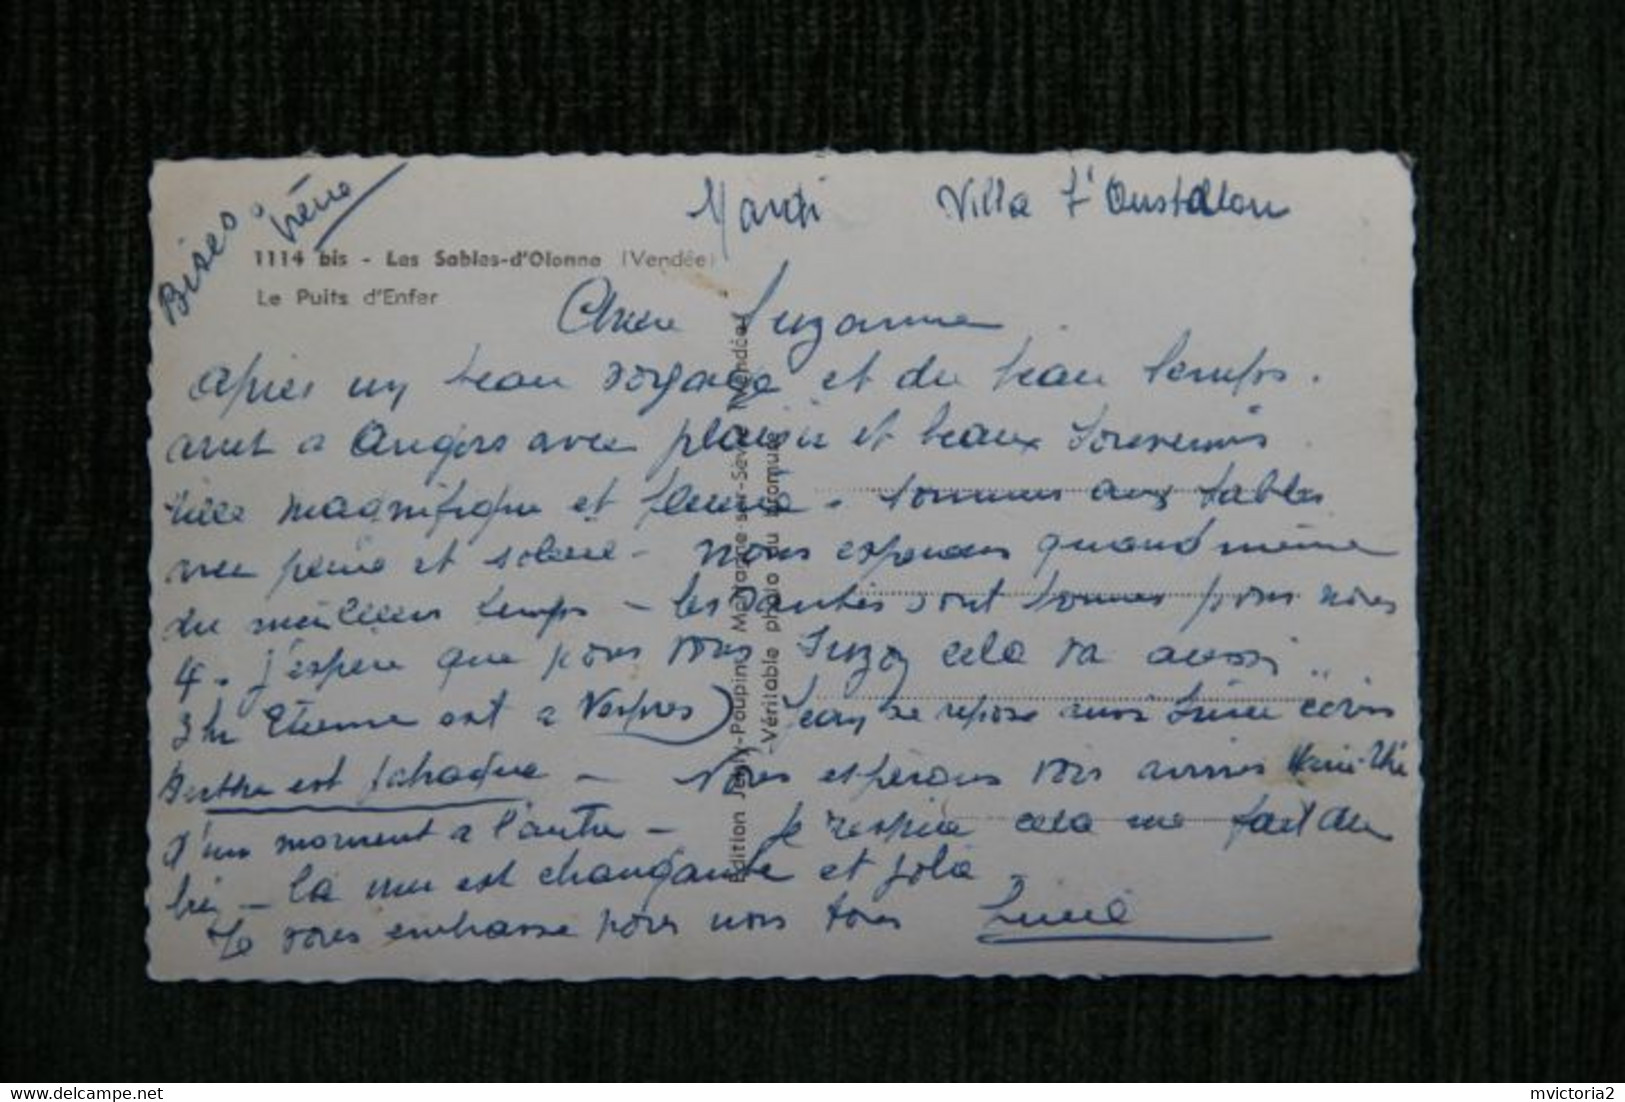 Bises à Irène
Mardi Villa L'Oustalou
1114 bis - Les Sables-d'Olonne (Vendée)
Le Puits d'Enfer
Chère Suzanne
après un beau voyage et du beau temps.
nuit a Angers avec plaisir et beaux souvenirs.
ville magnifique et fleurie. sommes aux Sables
avec pluie et soleil - nous esperons quand même
du meilleur temps - les santés sont bonnes pour nous
4. j'espère que pour vous Suzy cela va aussi..
3h Etienne est a Vespres) Jean se repose moi Lucie écris
Berthe est patraque - Nous esperons voir Marie-Thé
d'un moment a l'autre - Je respire cela me fait du
bien - la mer est changeante et jolie.
Je vous embrasse pour nous tous Lucie
Edition Jehly-Poupin, Mortagne-sur-Sèvre (Vendée)
-Véritable photo au bromure-
mvictoria2